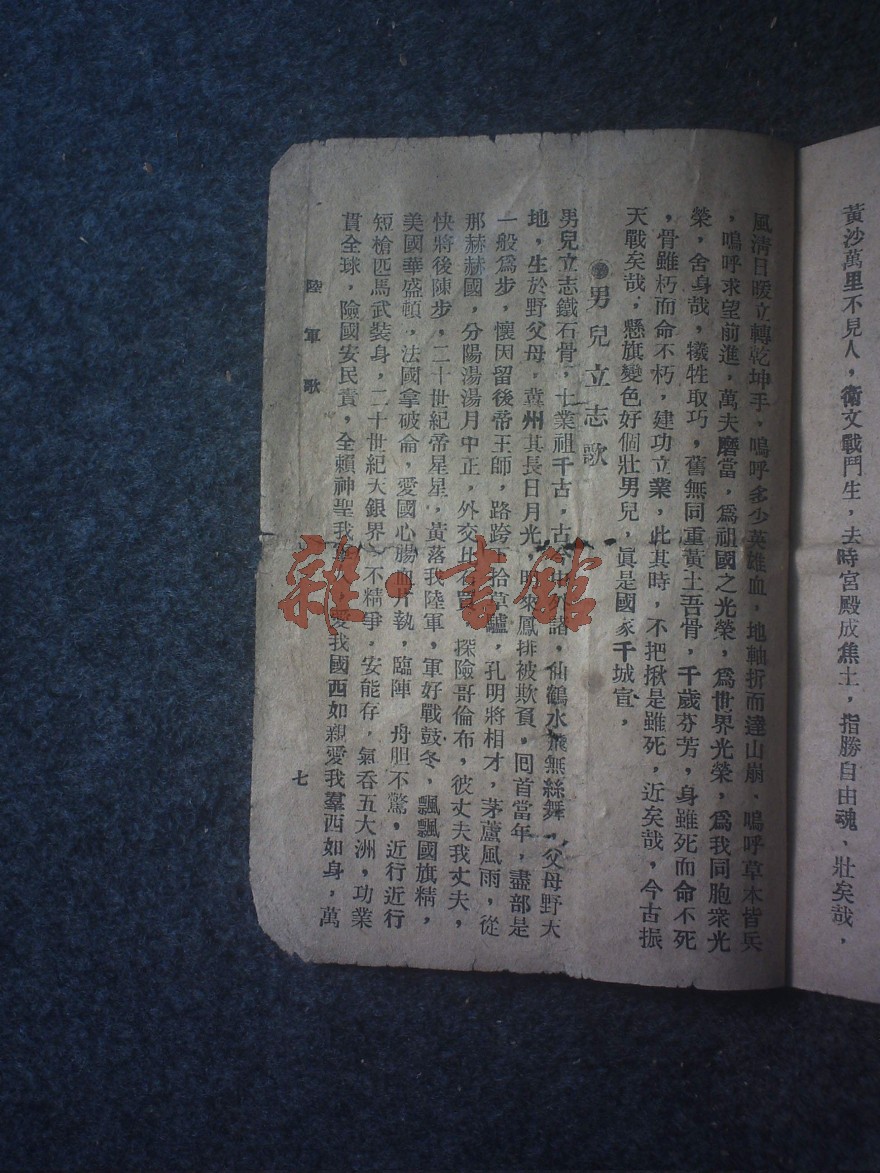 黃沙萬里不見人，衛文戰鬥生，去時宮殿成焦土，指勝自由魂、壯矣哉，
風清日暖立轉乾坤手、嗚呼多少英雄血，地軸折而達山崩、嗚呼草木皆兵
，嗚呼求望前進，萬夫磨當，爲祖國之光榮，爲世界光榮，爲我同胞衆光
榮，舍身哉，犧牲取巧，舊無同重黃土吾骨，千歲芬芳，身雖死而命不死
，骨雖朽而命不朽，建功立業，此其時，不把揪是雖死，近矣哉，今古振
天戰矣哉，懸旗變色好個壯男兒，眞是國家千城官，
男兒立志歌
男兒立志鐵石骨，士業祖千古，古今中外諸，仙鶴水飛無絲舞，父母野大
地，生於野父母，冀州其長日月光，明來鳳排被欺負，囘首當年，盡部是
一般爲步，懷因留後帝王師，路跨拾草驢，孔明將相才，茅蘆風雨，從
那赫赫國，分陽湯湯月中正，外交比，探險哥倫布，彼丈夫我丈夫，
快將後陳步，二十世紀帝星星，黃落我陸軍，軍好戰鼓冬，飄飄國旗精，
美國華盛頓，法國拿破侖，愛國心腸血片執，臨陣 舟胆不驚，近行近行
短槍匹馬武裝身，二十世紀大銀界，不精爭，安能存，氣吞五大洲，功業
貫全球，險國安民責，全賴神聖我，愛我國西如親愛我羣西如身，萬
陸軍歌
七
雜·書館